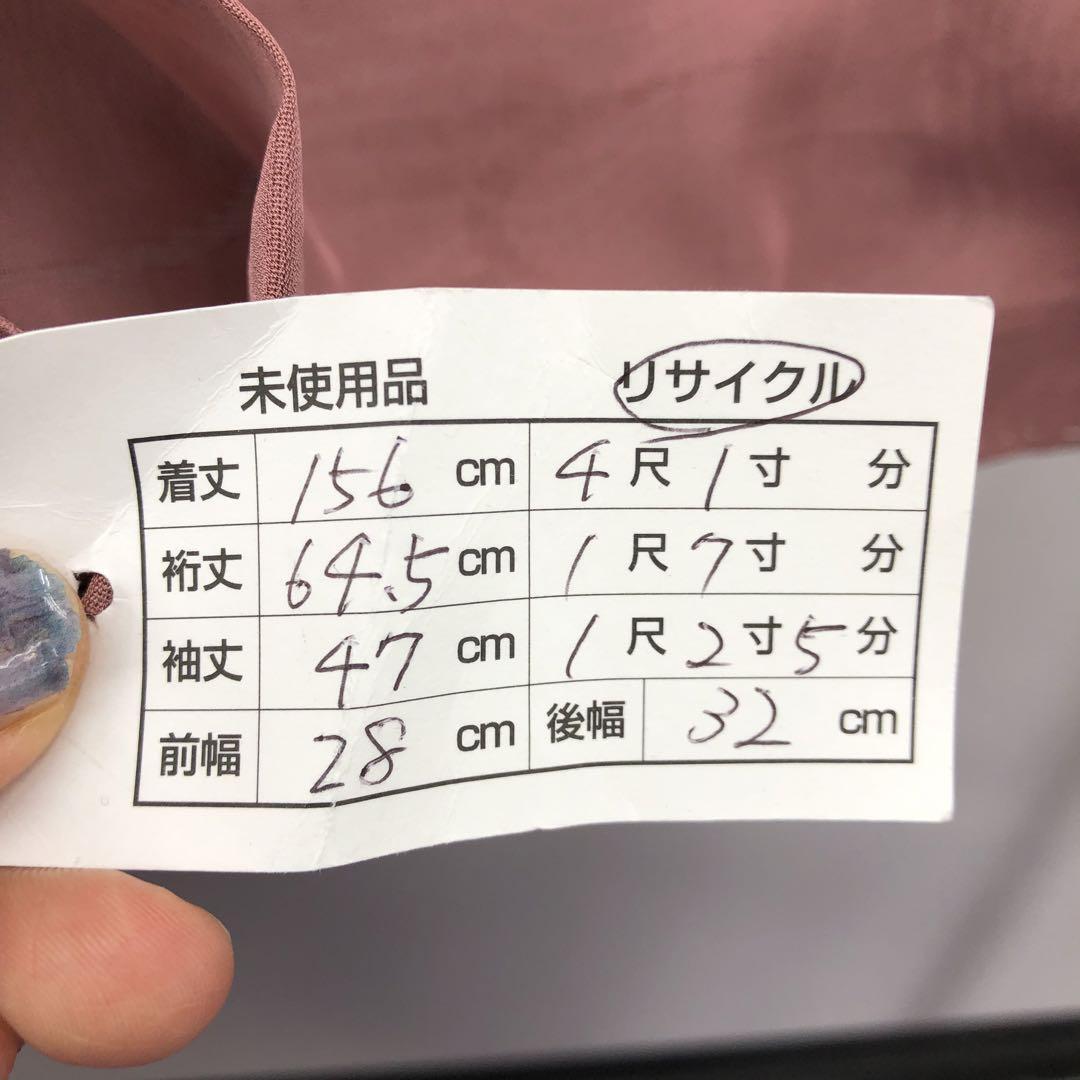 未使用品 リサイクル
着丈 156 cm 4尺1寸 分
裄丈 64.5 cm 1尺7寸 分
袖丈 47 cm 1尺2寸5分
前幅 28 cm 後幅 32 cm